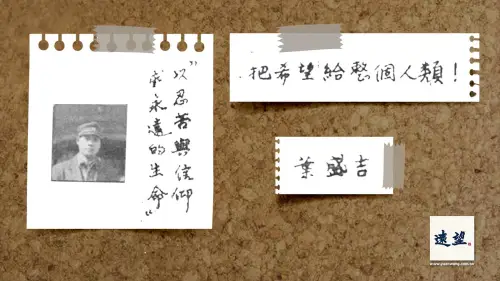 "以忍苦與信仰
求永遠的生命"
把希望給整個人類！
葉盛吉
遠望